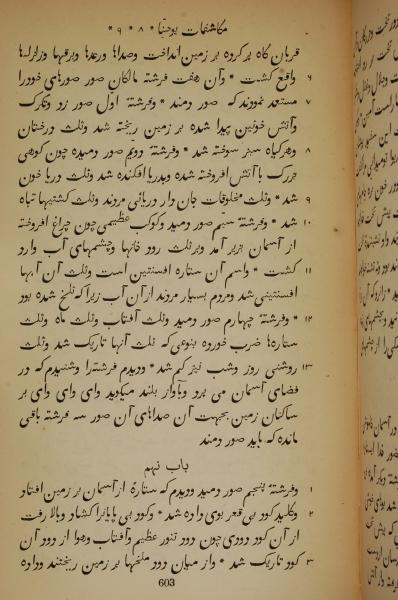 مکاشفات یوحنا * ۸ * ۹ *
قربان گاه بر کرده بر زمین انداخت وصداها ورعدها وبرقها وزلزلها
واقع گشت * وآن هفت فرشته مالکان صور صورهای خودرا ۶
مستعد نمودند که صور دمند * وفرشتهٔ اول صور زد وتگرک ۷
وآتش خونین پیدا شده بر زمین ریخته شد وثلث درختان
وهر گیاه سبز سوخته شد * وفرشتهٔ دویم صور دمیده چون کوهی ۸
بزرک با آتش افروخته شده وبدریا افکنده شد وثلث دریا خون
شد * وثلث مخلوقات جان دار دریائی مردند وثلث کشتیها تباه ۹
شد * وفرشتهٔ سیّم صور دمید وکوکب عظیمی چون چراغ افروخته ۱۰
از آسمان بزیر آمد وبر ثلث رود خانها وچشمهای آب وارد
گشت * واسم آن ستاره افسنتین است وثلث آن آبها ۱۱
افسنتینی شد ومردم بسیار مردند از آن آب زیرا که تلخ شده بود
* وفرشتهٔ چهارم صور دمید وثلث آفتاب وثلث ماه وثلث ۱۲
ستارهها ضرب خورده بنوعی که ثلث آنها تاریک شد وثلث
روشنی روز وشب نیز کم شد * ودیدم فرشتهرا وشنیدم که در ۱۳
فضای آسمان می پرد وبآواز بلند میگوید وای وای وای بر
ساکنان زمین بجهت آن صداهای آن صور سه فرشته باقی
مانده که باید صور دمند
باب نهم
وفرشتهٔ پنجم صور دمید ودیدم که ستارهٔ از آسمان بر زمین افتاد ۱
وکلید کود بی قعر بوی داده شد * وکود بی پایانرا کشاد وبالا رفت ۲
از آن کود دودی چون دود تنور عظیم وآفتاب وهوا از دود آن
کود تاریک شد * واز میان دود ملخها بر زمین ریختند وداده ۳
603